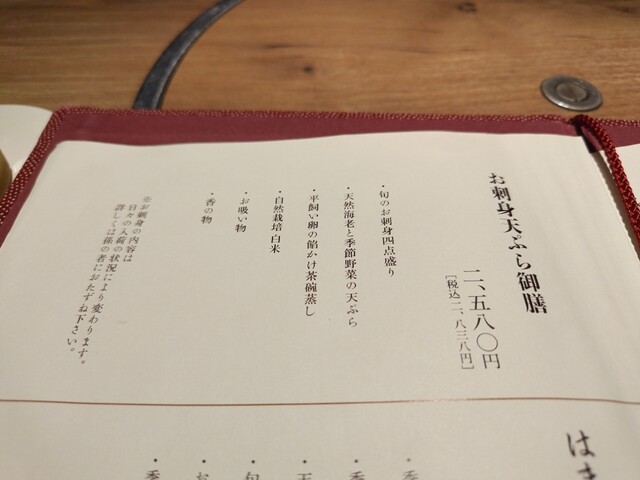 お刺身天ぷら御膳
二、五八〇円
［税込二、八三八円］
・旬のお刺身四点盛り
・天然海老と季節野菜の天ぷら
・平飼い卵の餡かけ茶碗蒸し
・自然栽培白米
・お吸い物
・香の物
※お刺身の内容は
日々の入荷の状況により変わります。
詳しくは係の者におたずね下さい。
はま
・季
・季
・天
・旬
・お
・季